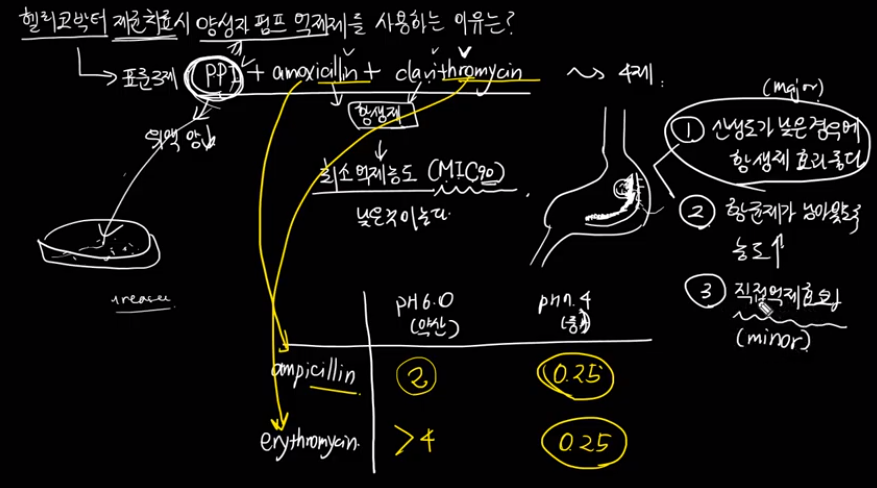 헬리코박터 제균치료시 양성자 펌프 억제제를 사용하는 이유는?
표준3제 PPI + amoxicillin + clarithromycin ~> 4제.
항생제
위액 양↓
최소억제농도 (MIC90)
낮은것이 좋다.
(major)
① 산성도가 낮은 경우에
항생제 효과 좋다
② 항균제가 남아있도록
농도↑
③ 직접억제효과
(minor)
pH 6.0 pH 7.4
(약산)
ampicillin 2 0.25
erythromycin >4 0.25